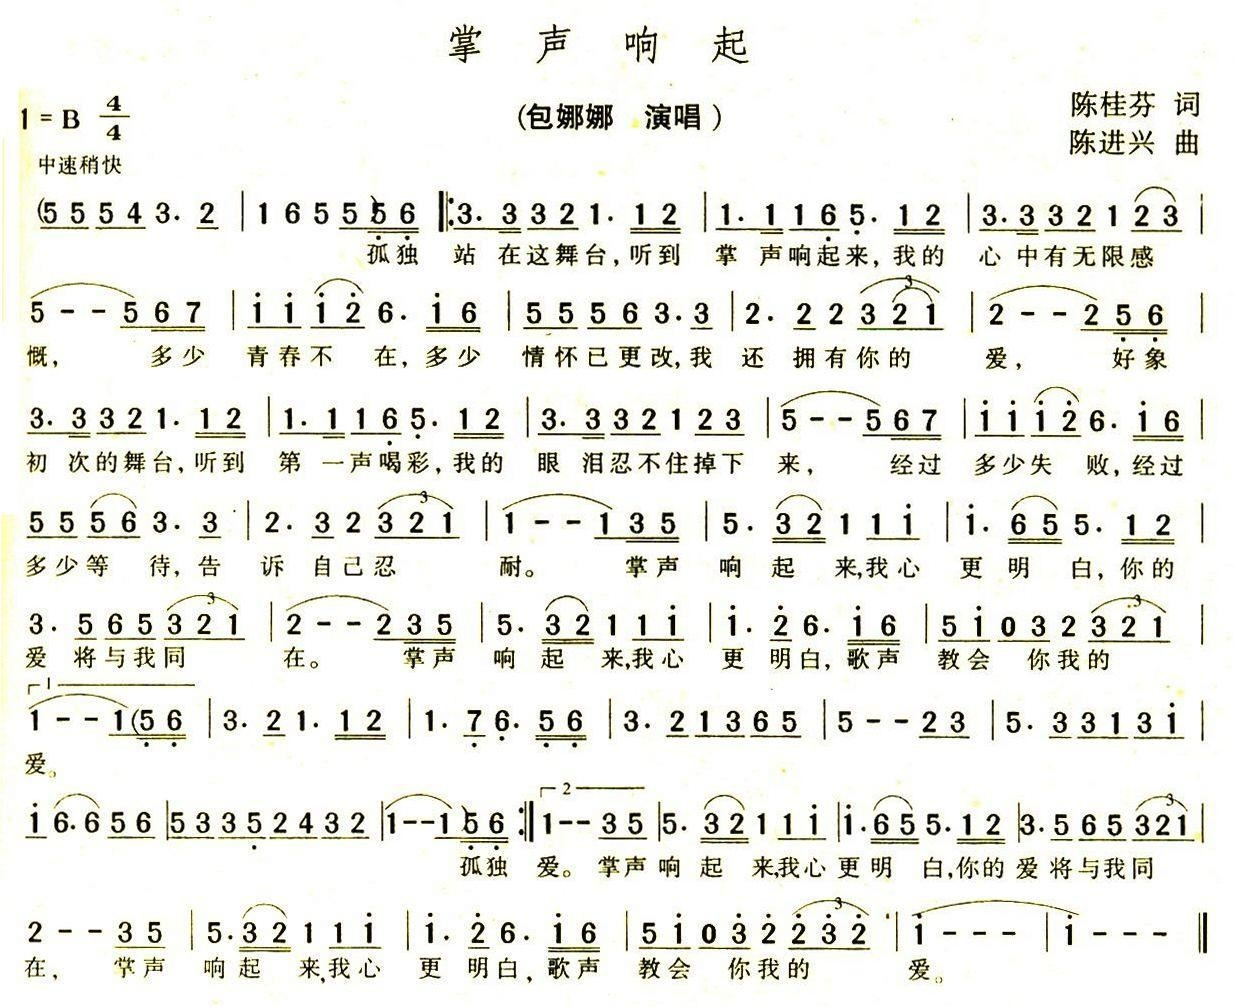 掌 声 响 起
1 = B 4/4
(包娜娜 演唱)
陈桂芬 词
陈进兴 曲
中速稍快
(5 5 5 4 3. 2 | 1 6 5 5 5) 5 6 ‖: 3. 3 3 2 1. 1 2 | 1. 1 1 6 5. 1 2 | 3. 3 3 2 1 2 3 |
孤独 站 在这舞台,听到 掌 声响起来,我的 心 中有无限感
5 - - 5 6 7 | i i i 2 6. i 6 | 5 5 5 6 3. 3 | 2. 2 2 3 2 1 | 2 - - 2 5 6 |
慨, 多少 青春不 在,多少 情怀已更改,我 还 拥有你的 爱, 好象
3. 3 3 2 1. 1 2 | 1. 1 1 6 5. 1 2 | 3. 3 3 2 1 2 3 | 5 - - 5 6 7 | i i i 2 6. i 6 |
初 次的舞台,听到 第 一声喝彩,我的 眼 泪忍不住掉下 来, 经过 多少失 败,经过
5 5 5 6 3. 3 | 2. 3 2 3 2 1 | 1 - - 1 3 5 | 5. 3 2 1 1 i | i. 6 5 5. 1 2 |
多少等 待,告 诉 自己忍 耐。 掌声 响 起 来,我心 更 明 白,你的
3. 5 6 5 3 2 1 | 2 - - 2 3 5 | 5. 3 2 1 1 i | i. 2 6. i 6 | 5 i 0 3 2 3 2 1 |
爱 将与我同 在。 掌声 响 起 来,我心 更 明白,歌声 教会 你我的
1
1 - - 1 (5 6 | 3. 2 1. 1 2 | 1. 7 6. 5 6 | 3. 2 1 3 6 5 | 5 - - 2 3 | 5. 3 3 1 3 i |
爱。
i 6. 6 5 6 | 5 3 3 5 2 4 3 2 | 1 - - 1) 5 6 :‖ 2 1 - - 3 5 | 5. 3 2 1 1 i | i. 6 5 5. 1 2 | 3. 5 6 5 3 2 1 |
孤独 爱。掌声 响 起 来,我心 更 明 白,你的 爱 将与我同
2 - - 3 5 | 5. 3 2 1 1 i | i. 2 6. i 6 | 5 i 0 3 2 2 3 2 | i - - - | i - - - ‖
在, 掌声 响 起 来,我心 更 明白,歌声 教会 你我的 爱。